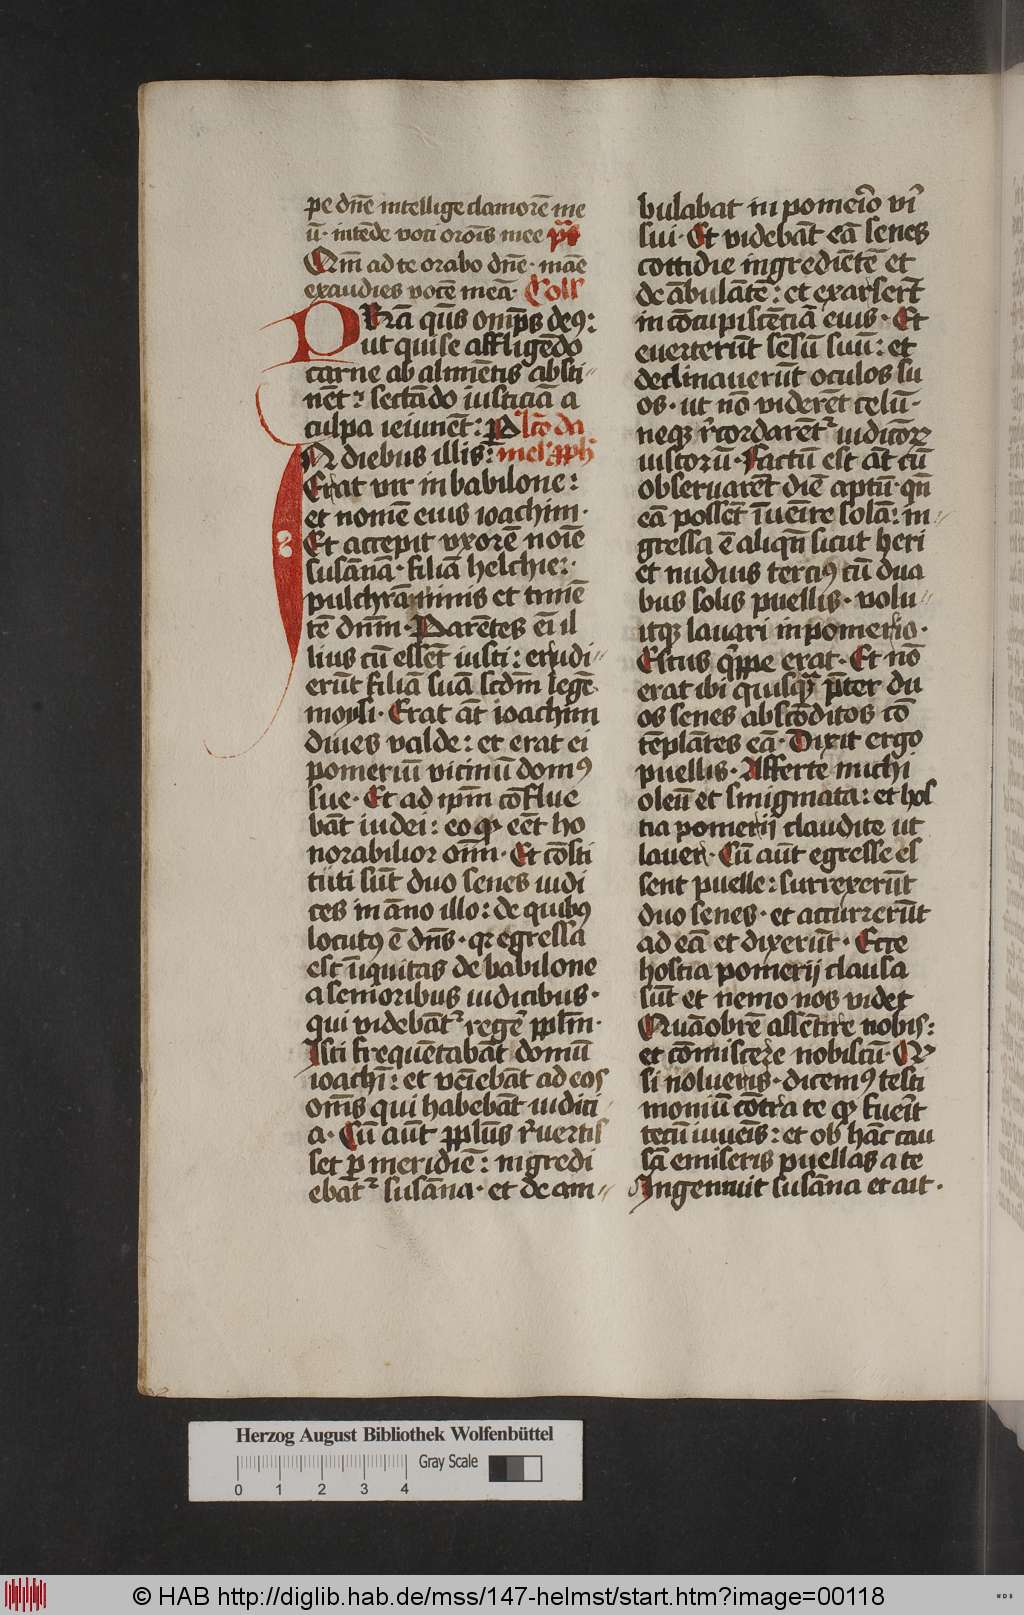 pe dn̄e intellige clamorē me
ū· intēde voti orōis mee p̄s
Qm̄ ad te orabo dn̄e· mane
exaudies vocē meā· Coll
PRā q̄s omp̄s deꝰ:
ut qui se affligēdo
carne ab alimētis absti〃
nēt: sectādo iusticiā a
culpa ieiunēt: p lc̄o da
IN diebus illis: niel' pph'
Erat vir in babilone:
et nomē eius ioachim·
Et accepit vxorē noīe
susānā· filiā helchie:·
pulchrā nimis et timē
tē dn̄m· Parētes eī il
lius cū essēt iusti: erudi〃
erūt filiā suā scd̄m legē·
moysi· Erat āt ioachim
diues valde: et erat ei
pomeriū vicinū domꝰ
sue· Et ad ip̄m cōflue
bāt iudei: eo ꝙ eēt ho
norabilior om̄· Et cōsti
tuti sūt duo senes iudi
ces in āno illo: de quibꝰ
locutꝰ ē dn̄s· qr egressa
est īiquitas de babilone
a senioribus iudicibus·
qui videbāt᷑ regē pplm̄·
Isti frequētabāt domū
ioachī: et veīebāt ad eos
om̄s qui habebāt iudici
a· Cū aūt pplūs r̄uertis
set p̄ meridiē: ingredi
ebāt᷑ susāna· et de am〃
bulabat in pomeīo vī
sui· Et videbāt eā senes
cottidie ingrediētē et
de ābulātē: et exarsert̄
in cōcupiscētiā eius· Et
euerterūt sēsū suū: et
declinauerūt oculos su
os· ut nō viderēt celū·
neqꝫ r̄cordarēt᷑ iudicioꝝ
iustorū· Factū est āt cū
obseruarēt diē aptū· qn̄
eā possēt īuēire solā: in〃
gressa ē aliqn̄ sicut heri
et nudius terciꝰ cū dua
bus solis puellis· volu〃
itqꝫ lauari in pomerio·
Estus q̄ppe erat· Et nō
erat ibi quisqꝫ p̄ter du
os senes abscōditos cō
tēplātes eā· Dixit ergo
puellis· Afferte michi
oleū et smigmata: et hos
tia pomerij claudite ut
lauer· Cū aūt egresse es
sent puelle: surrexerūt
duo senes· et accurrerūt
ad eā et dixerūt· Ecce
hostia pomerij clausa
sūt et nemo nos videt
Quāobrē assētire nobis:
et cōmiscere nobiscū· Qꝫ
si nolueris· dicemꝰ testi
moniū cōtra te ꝙ fueīt
tecū iuueīs: et ob hāc cau
sā emiseris puellas a te
Ingemuit susāna et ait·
Herzog August Bibliothek Wolfenbüttel
Gray Scale
0 1 2 3 4
© HAB http://diglib.hab.de/mss/147-helmst/start.htm?image=00118